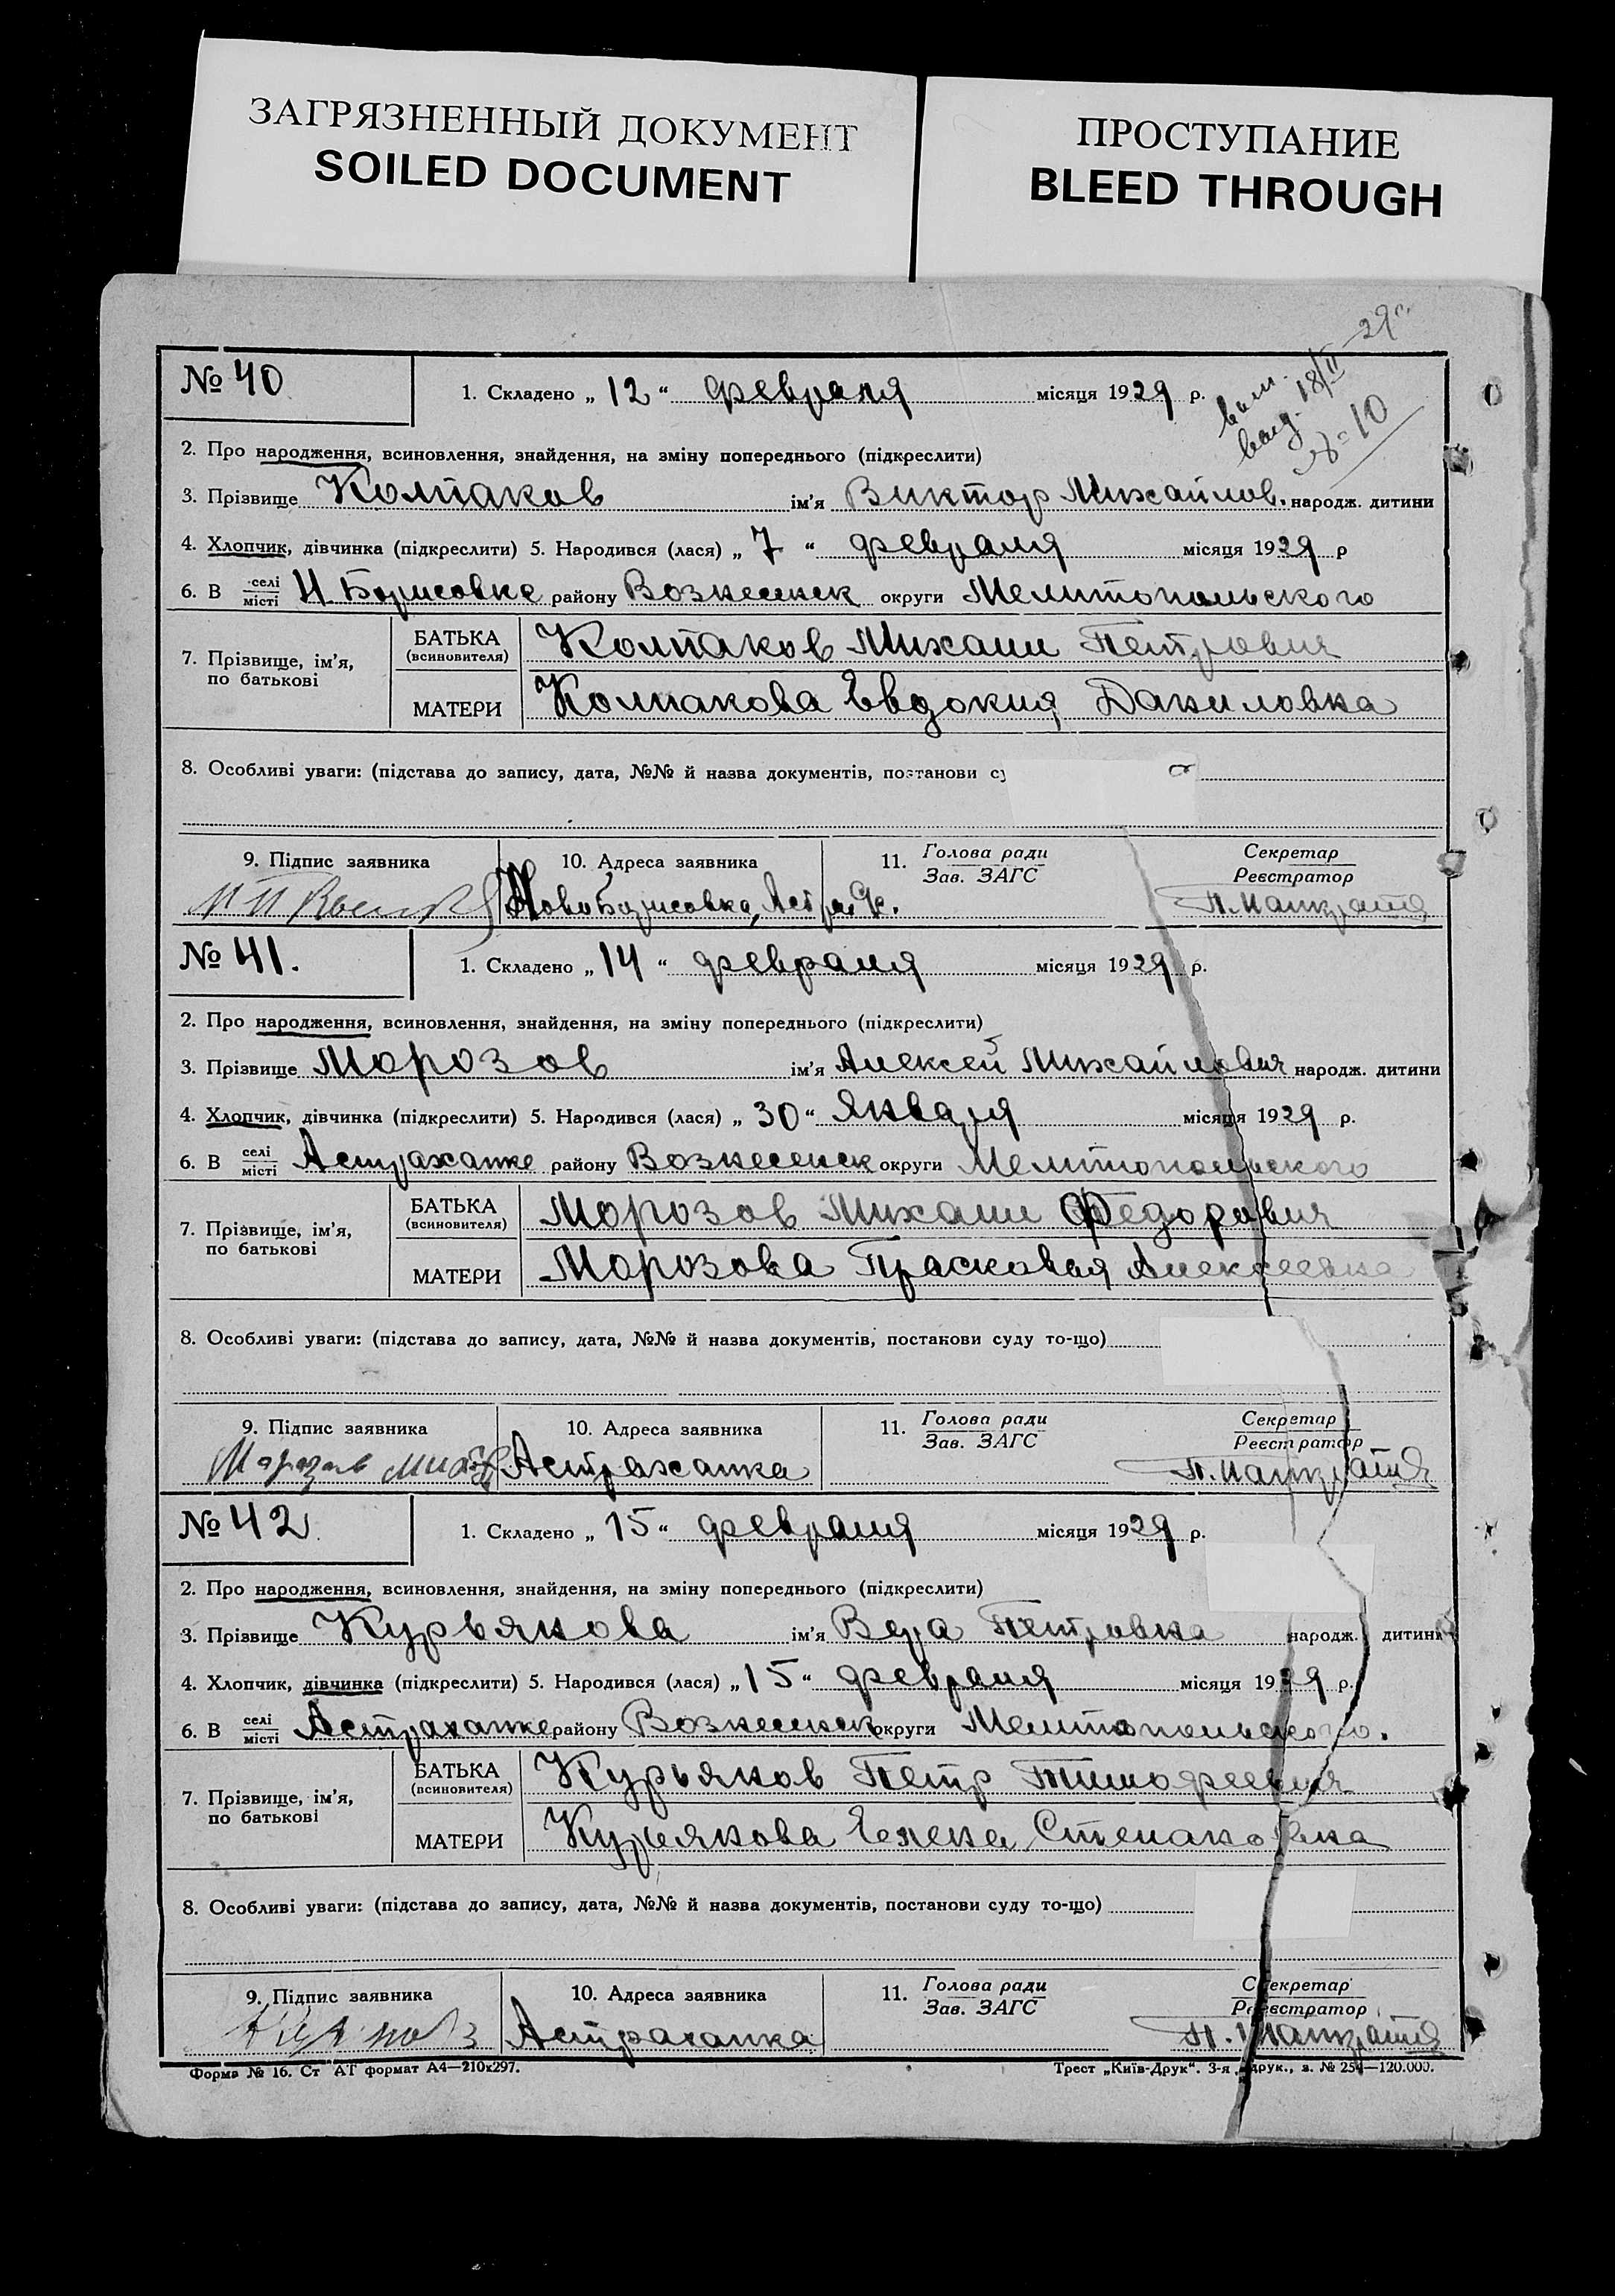 ЗАГРЯЗНЕННЫЙ ДОКУМЕНТ
SOILED DOCUMENT
ПРОСТУПАНИЕ
BLEED THROUGH
18/II-29г.
№ 10
№ 40
1. Складено „ 12 “ февраля місяця 1929 р.
2. Про народження, всиновлення, знайдення, на зміну попереднього (підкреслити)
3. Прізвище Колпаков ім'я Виктор Михайлов. народж. дитини
4. Хлопчик, дівчинка (підкреслити) 5. Народився (лася) „ 7 “ февраля місяця 1929 р
6. В селі місті Н Борисовке району Вознесенск округи Мелитопольского
7. Прізвище, ім'я, по батькові
БАТЬКА (всиновителя) Колпаков Михаил Петрович
МАТЕРИ Колпакова Евдокия Даниловна
8. Особливі уваги: (підстава до запису, дата, №№ й назва документів, постанови су
9. Підпис заявника
10. Адреса заявника
11. Голова ради Зав. ЗАГС
Секретар Реєстратор
Ново Борисовка,
№ 41.
1. Складено „ 14 “ февраля місяця 1929 р.
2. Про народження, всиновлення, знайдення, на зміну попереднього (підкреслити)
3. Прізвище Морозов ім'я Алексей Михайлович народж. дитини
4. Хлопчик, дівчинка (підкреслити) 5. Народився (лася) „ 30 “ января місяця 1929 р.
6. В селі місті Астраханке району Вознесенск округи Мелитопольского
7. Прізвище, ім'я, по батькові
БАТЬКА (всиновителя) Морозов Михаил Федорович
МАТЕРИ Морозова Прасковья Алексеевна
8. Особливі уваги: (підстава до запису, дата, №№ й назва документів, постанови суду то-що)
9. Підпис заявника
10. Адреса заявника
11. Голова ради Зав. ЗАГС
Секретар Реєстратор
Морозов Астраханка
№ 42.
1. Складено „ 15 “ февраля місяця 1929 р.
2. Про народження, всиновлення, знайдення, на зміну попереднього (підкреслити)
3. Прізвище Курьянова ім'я Вера Петровна народж. дитини
4. Хлопчик, дівчинка (підкреслити) 5. Народився (лася) „ 15 “ февраля місяця 1929 р.
6. В селі місті Астраханке району Вознесенск округи Мелитопольского.
7. Прізвище, ім'я, по батькові
БАТЬКА (всиновителя) Курьянов Петр Тимофеевич
МАТЕРИ Курьянова Елена Степановна
8. Особливі уваги: (підстава до запису, дата, №№ й назва документів, постанови суду то-що)
9. Підпис заявника
10. Адреса заявника
11. Голова ради Зав. ЗАГС
Секретар Реєстратор
Астраханка
Форма № 16. Ст АТ формат А4—210x297.
Трест „Київ-Друк“. 3-я друк., з. № 254—120.000.